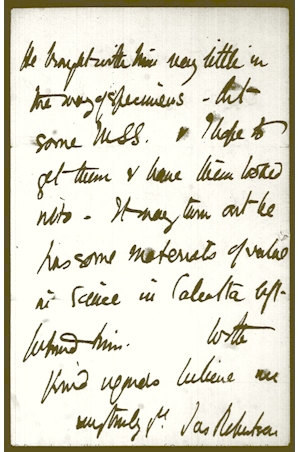 He brought with him very little in
the way of specimens - but
some MSS. & I hope to
get them & have them looked
into - It may turn out he
has some materials of value
in Science in Calcutta left
behind him. With
kind regards believe me
very truly yrs. Jas Robertson